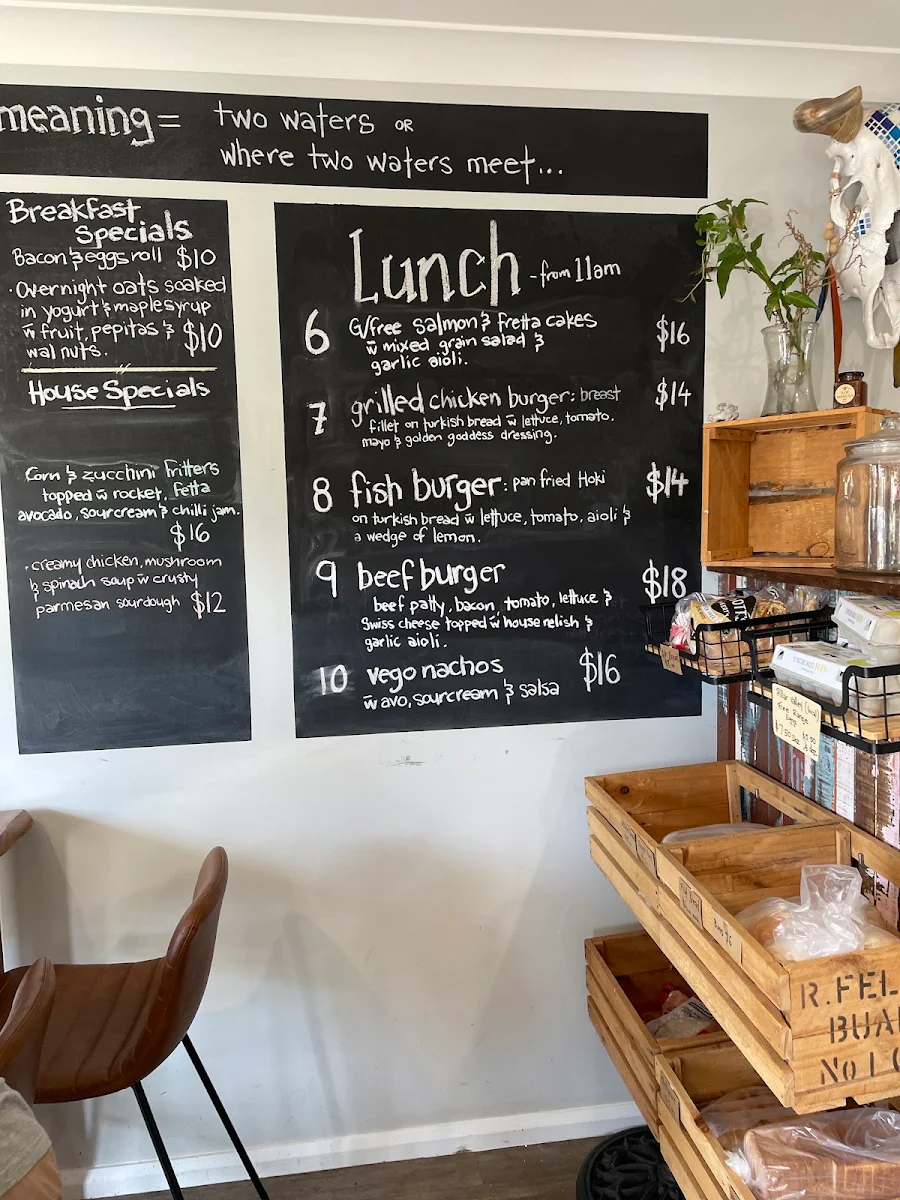 meaning = two waters or
where two waters meet...
Breakfast
Specials
Bacon & eggs roll $10
·Overnight oats soaked
in yogurt & maple syrup
w̄ fruit, pepitas &
walnuts. $10
House Specials
Corn & zucchini fritters
topped w̄ rocket, fetta
avocado, sourcream & chilli jam.
$16
·creamy chicken, mushroom
& spinach soup w̄ crusty
parmesan sourdough $12
Lunch -from 11am
6 G/free salmon & fretta cakes $16
w̄ mixed grain salad &
garlic aioli.
7 grilled chicken burger: breast $14
fillet on turkish bread w̄ lettuce, tomato.
mayo & golden goddess dressing.
8 fish burger: pan fried Hoki $14
on turkish bread w̄ lettuce, tomato, aioli &
a wedge of lemon.
9 beef burger $18
beef patty, bacon, tomato, lettuce &
Swiss cheese topped w̄ house relish &
garlic aioli.
10 vego nachos $16
w̄ avo, sourcream & salsa
Free Range
Eggs
$7.50 Doz
R.FEL
BUA
No 1